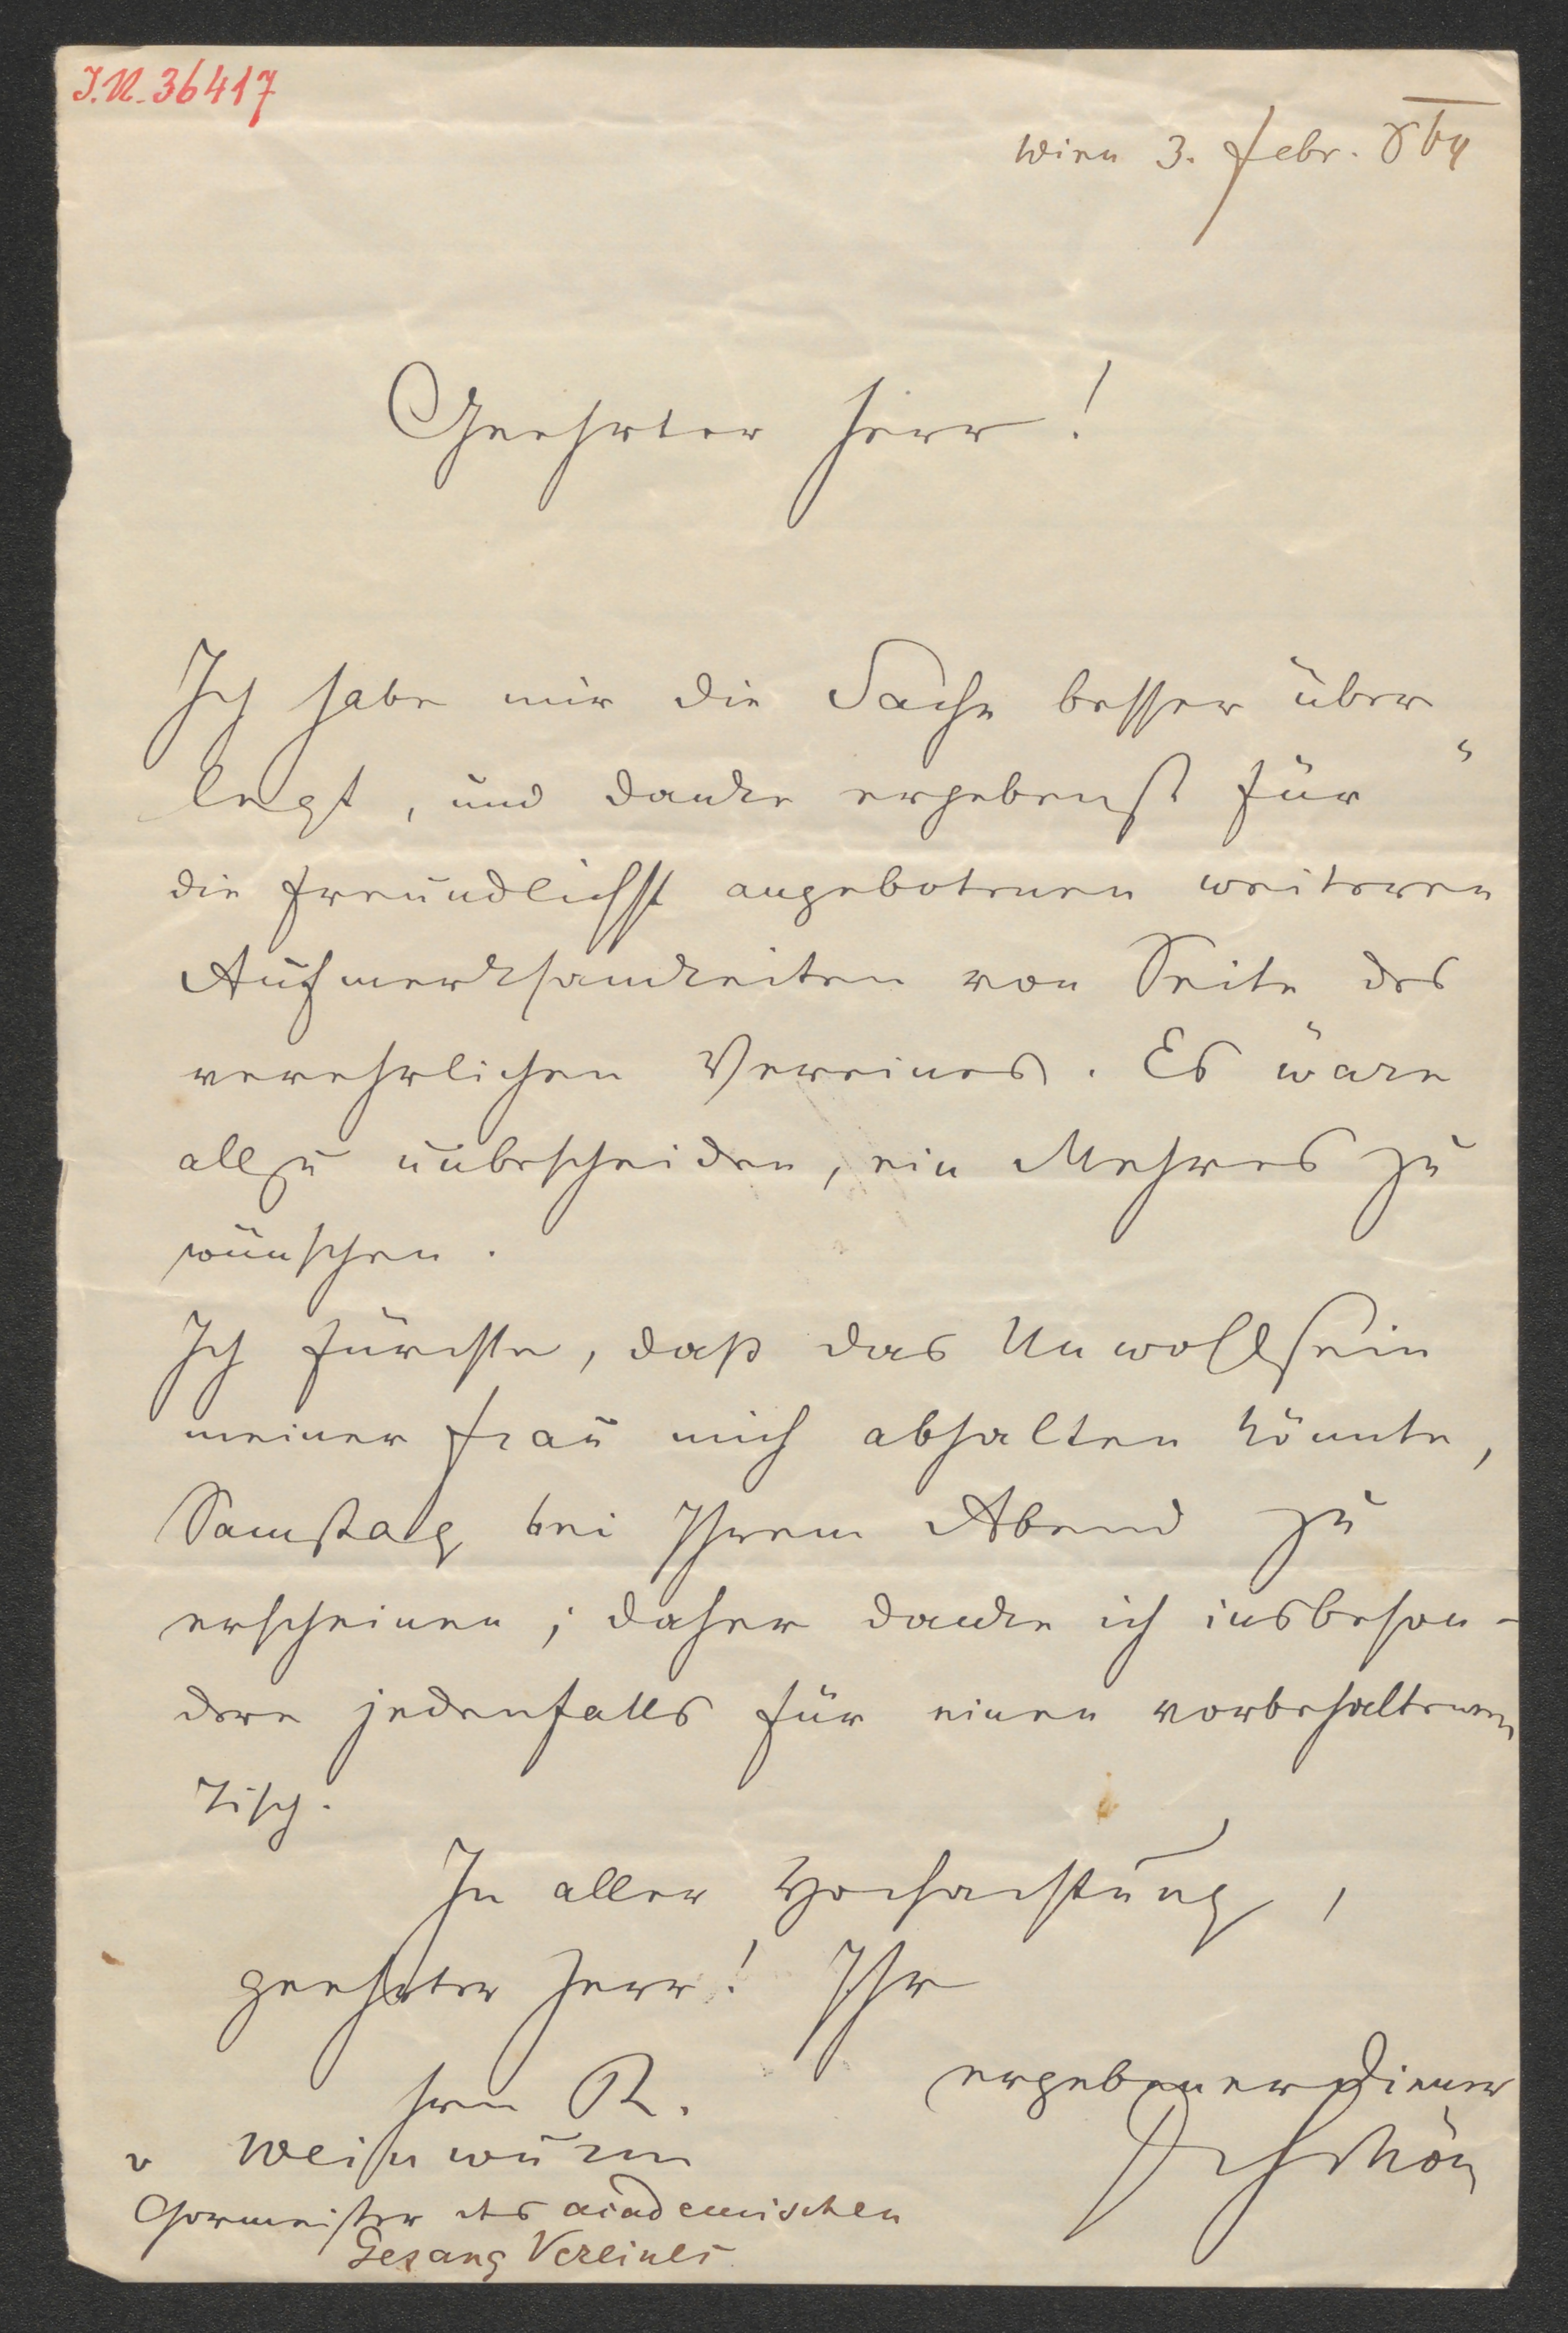 I.N. 36417
Wien 3. Febr. 864
Geehrter Herr!
Ich habe mir die Sache besser über-
legt, und danke ergebenst für
die freundlichst angebotenen weiteren
Aufmerksamkeiten von Seite des
verehrlichen Vereines. Es wäre
allzu unbescheiden, ein Mehres zu
wünschen.
Ich fürchte, daß das Unwohlsein
meiner Frau mich abhalten könnte,
Samstag bei Ihrem Abend zu
erscheinen; daher danke ich insbeson-
dere jedenfalls für einen vorbehaltenen
Tisch.
In aller Hochachtung,
geehrter Herr! Ihr
ergebener Diener
Hrn R.
Weinwurm
Chormeister des academischen
Gesang Vereines